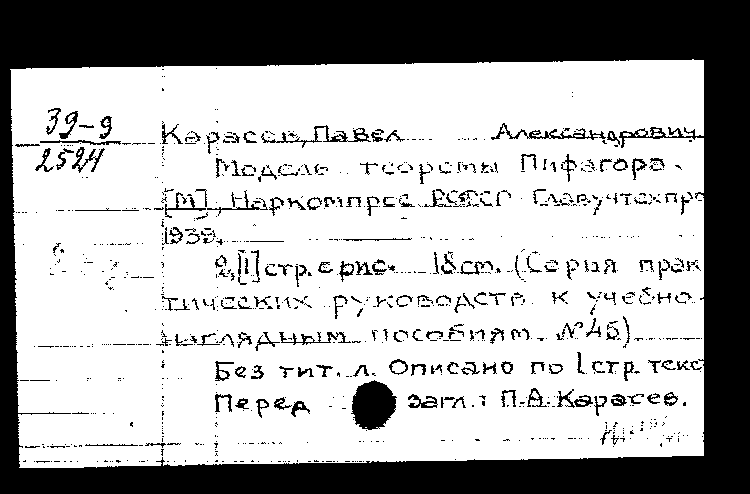 39-9
2524
Карасев, Павел Александрович
Модель теоремы Пифагора.
[М], Наркомпрос РСФСР Главучтехпро
1939.
2,[1] стр. с рис. 18 см. (Серия прак
тических руководств к учебно-
наглядным пособиям. №45)
Без тит. л. Описано по 1 стр. текс
Перед загл.: П.А. Карасев.